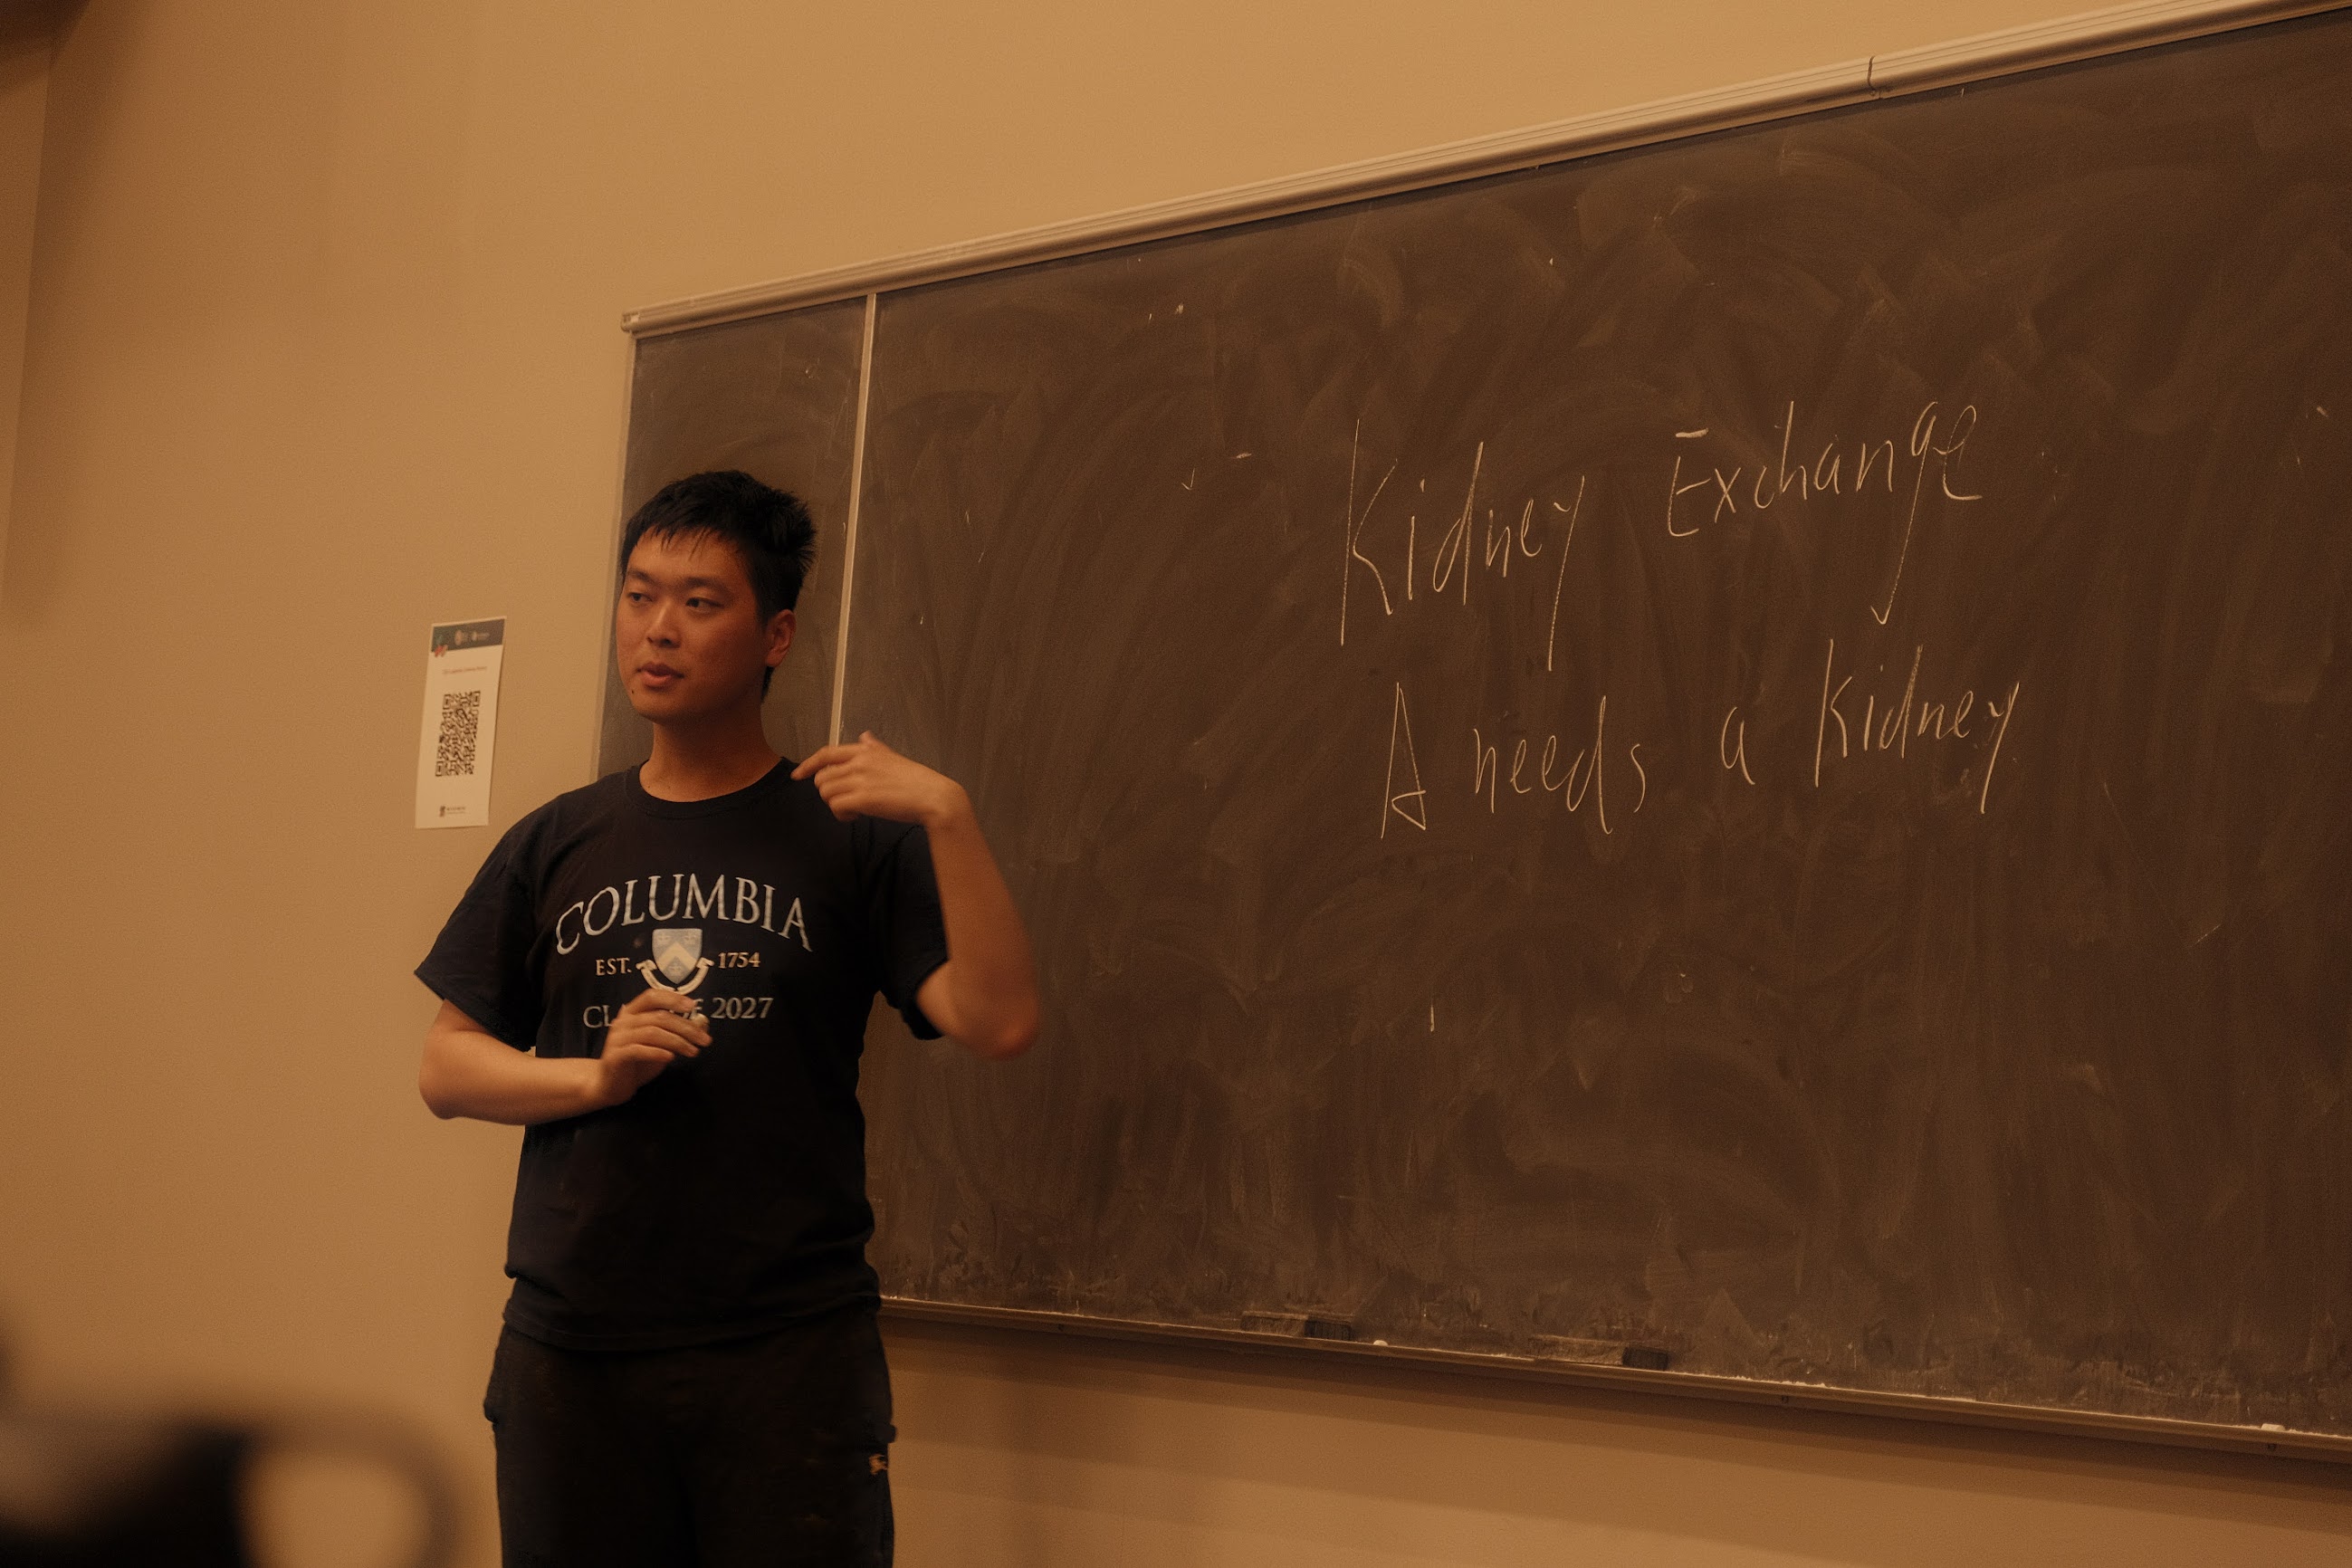 Kidney Exchange
A needs a Kidney
COLUMBIA
EST. 1754
2027